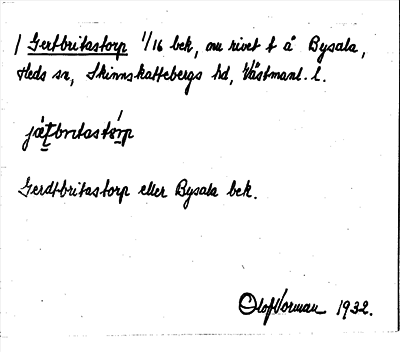 / Gertbritastorp 1/16 bek, om rivet t å Bysala,
Heds sn, Skinnskattebergs hd, Västmanl. l.
jä́t̠britastǻrp
Gerdtbritastorp eller Bysala bek.
Olof Vorman 1932.